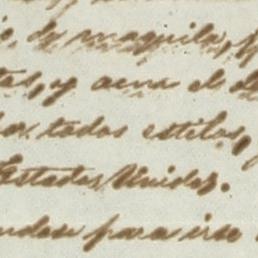 de maquila,
y aun el
todos estilos,
Estados Unidos.
para irse